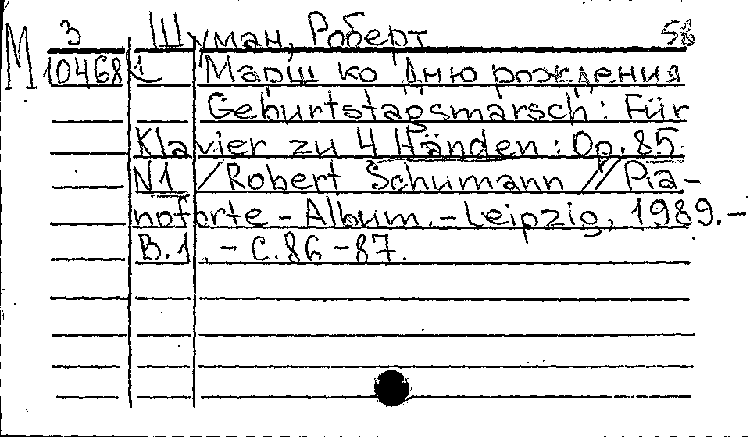 М 3 Шуман, Роберт 58
104681 Марш ко Дню рождения
Geburtstagsmarsch: Für
Klavier zu 4 Händen: Op. 85.
N1 / Robert Schumann // Pia-
noforte - Album. - Leipzig, 1989. -
B.1. - С. 86 - 87.